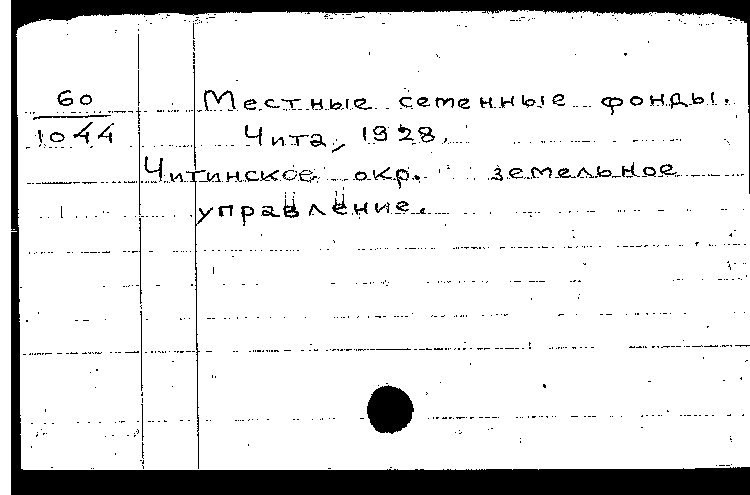 60
1044
Местные семенные фонды.
Чита, 1928.
Читинское окр. земельное
управление.